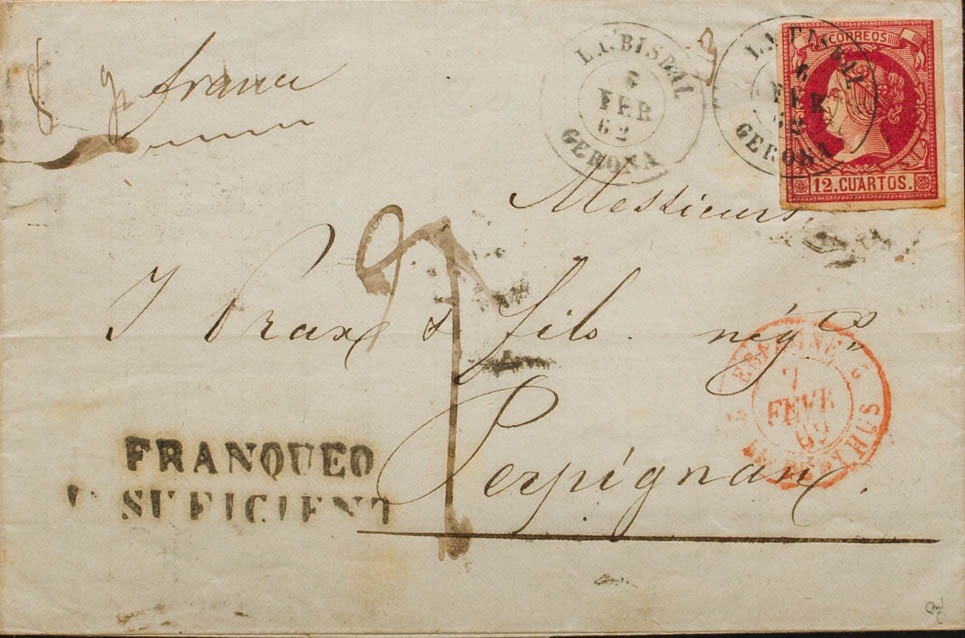 france
LA BISBAL
6
FEB
62
GERONA
LA BISBAL
6
FEB
62
GERONA
CORREOS
12.CUARTOS.
Messieurs
J Prax & fils nég
Perpignan
ESPAGNE
7
FEVR
62
PERTHUS
FRANQUEO
SUFICIENT